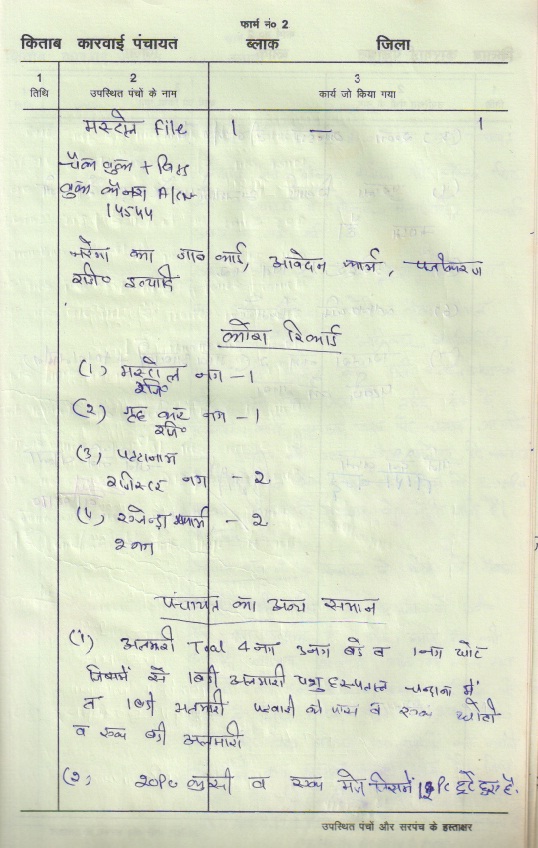 फार्म नं० 2
किताब कारवाई पंचायत ब्लाक जिला
1 2 3
तिथि उपस्थित पंचों के नाम कार्य जो किया गया
मस्ट्रोल File 1 — 1
चैक बुक +
बुक A/c No
14544
नरेगा का जाब कार्ड, आवेदन फार्म, पंजीकरण
रजि० इत्यादि
कोरा रिकार्ड
(1) मस्ट्रोल नग - 1
रजि०
(2) गृह कर नग - 1
रजि०
(3) पट्टानाम
रजिस्टर नग - 2
(4) एजेन्डा फार्म - 2
2 नग
पंचायत का अन्य समान
(1) अलमारी Toal 4 नग 3 नग बडे व 1 नग छोट
जिसमें से 1 बडी अलमारी पशु हस्पताल में
व 1 बडी अलमारी पटवारी के पास व एक छोटी
व एक बडी अलमारी
(2) 20Pc कुर्सी व एक मेज जिसमें Pc टुटे हुए है.
उपस्थित पंचों और सरपंच के हस्ताक्षर